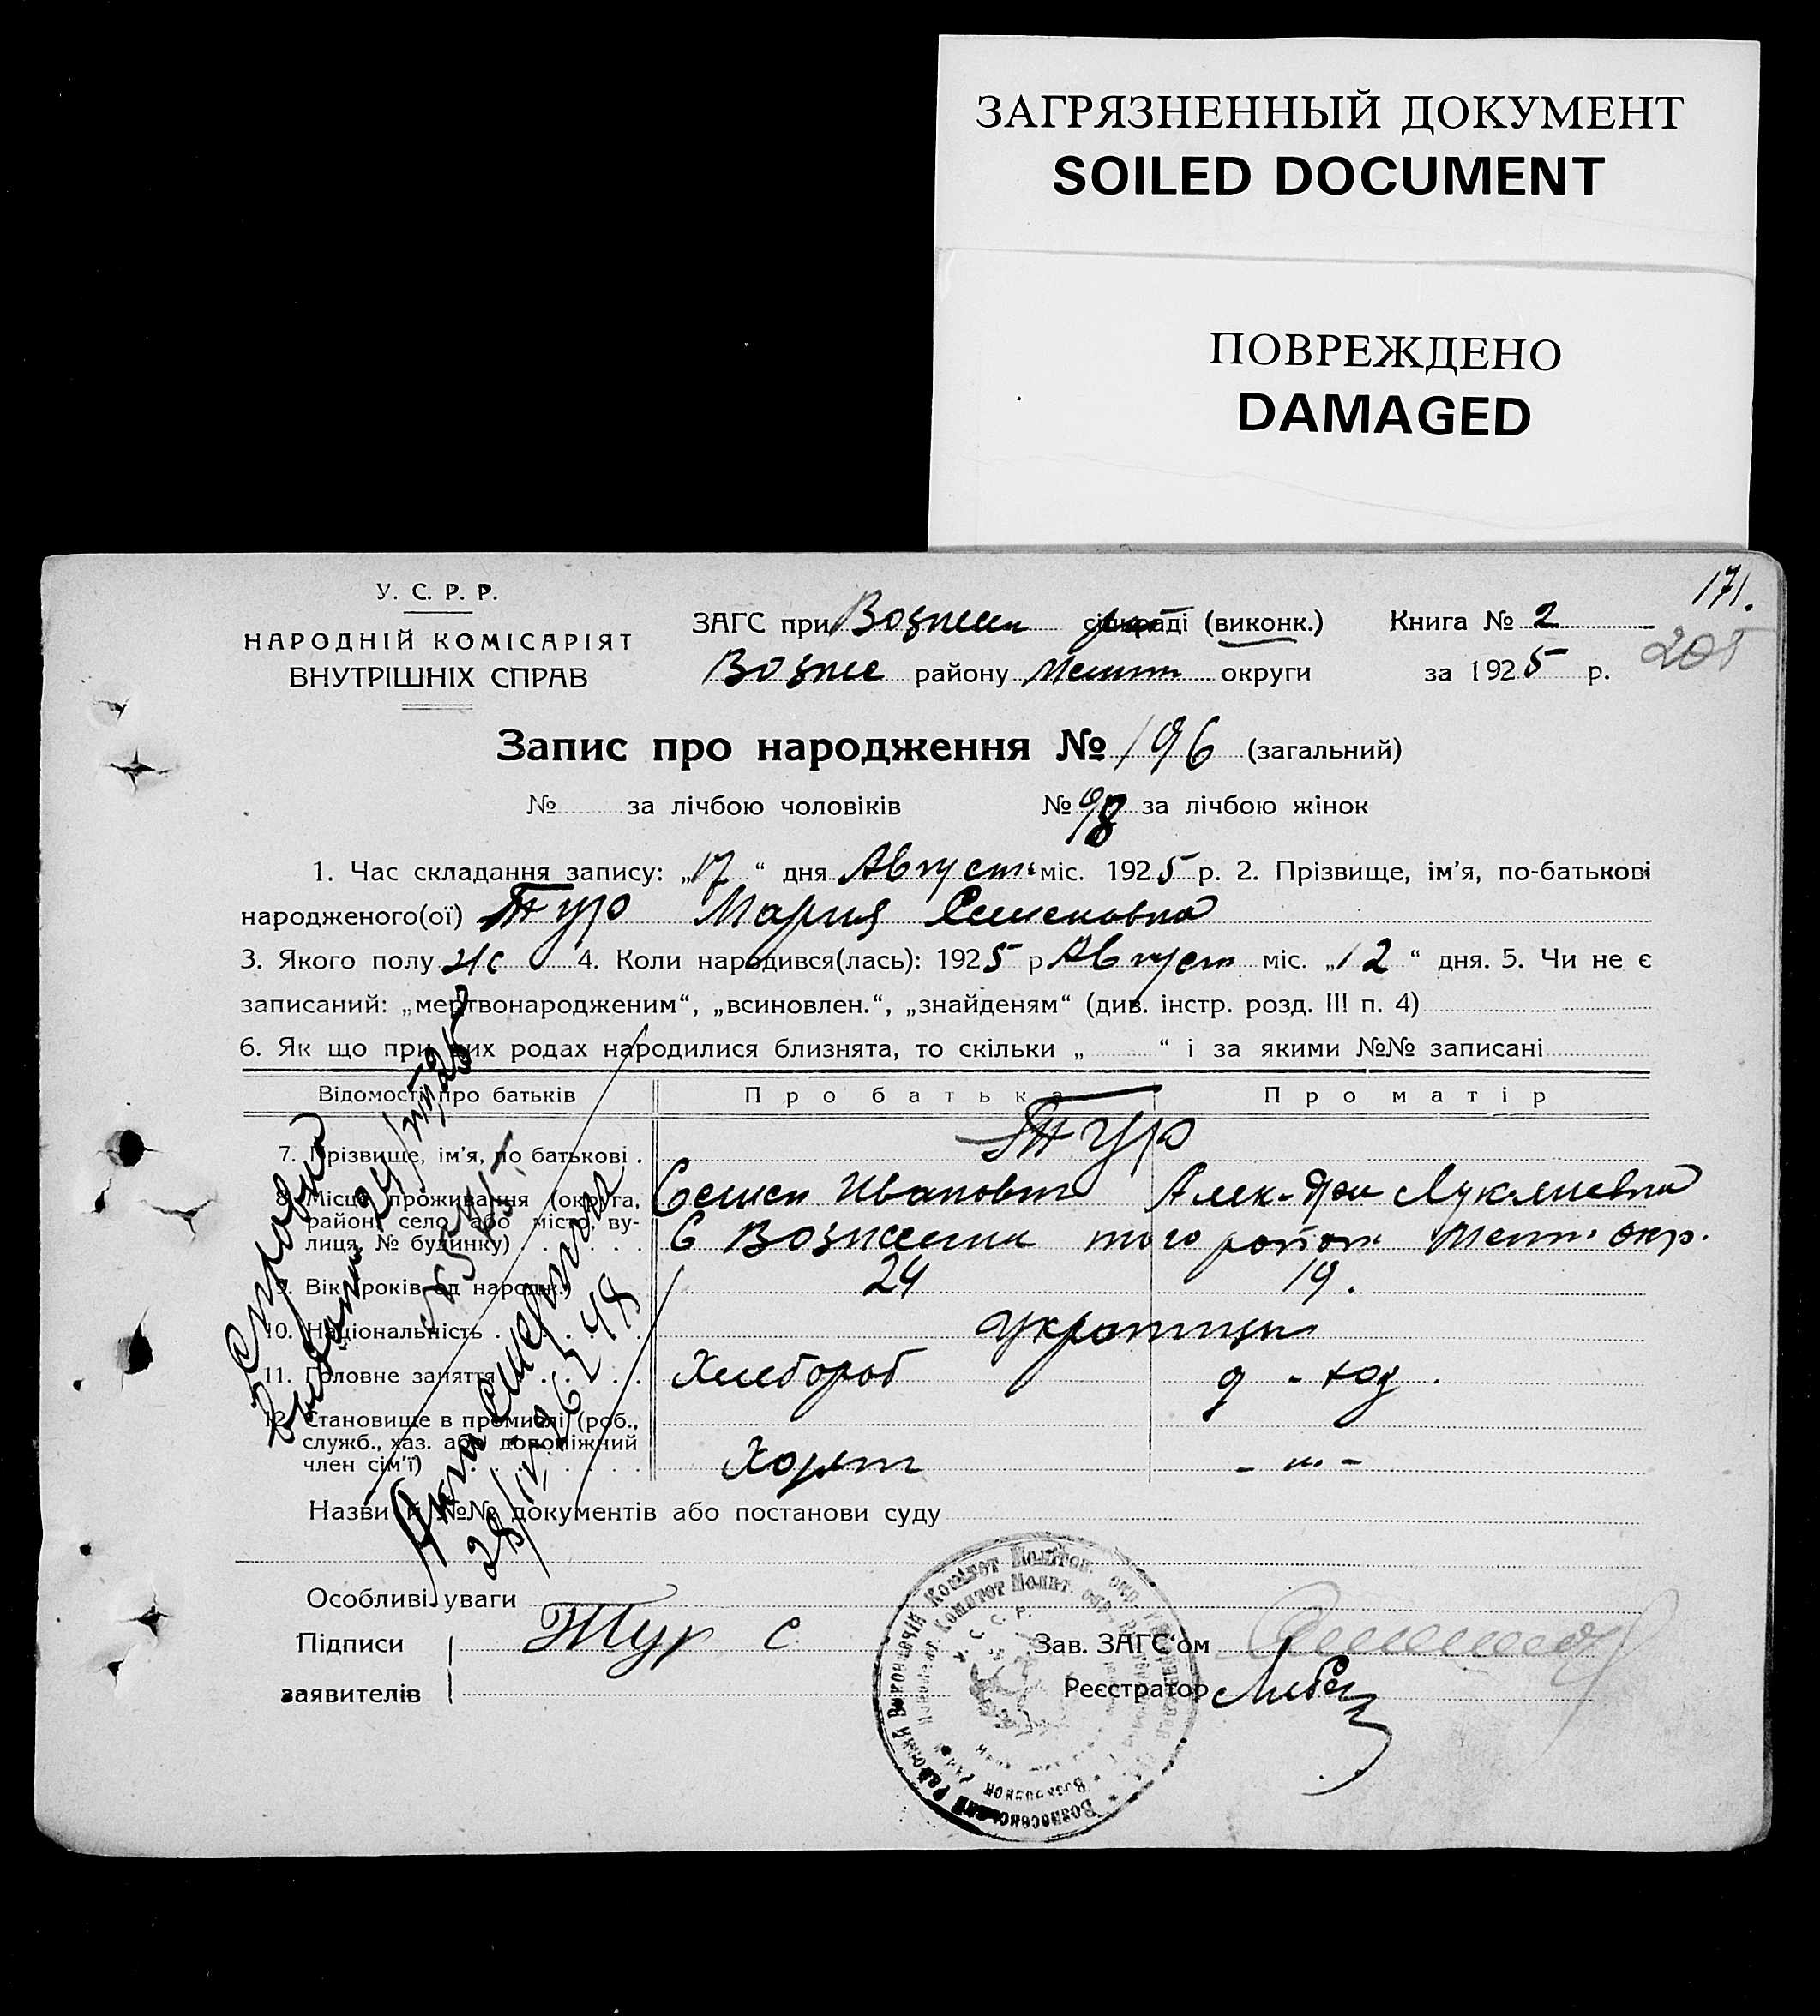 ЗАГРЯЗНЕННЫЙ ДОКУМЕНТ
SOILED DOCUMENT
ПОВРЕЖДЕНО
DAMAGED
171.
205
У. С. Р. Р.
НАРОДНІЙ КОМІСАРІЯТ
ВНУТРІШНІХ СПРАВ
ЗАГС при Вознесен сільраді (виконк.) Книга № 2
Вознес району Мелит округи за 1925 р.
Запис про народження № 196 (загальний)
№ за лічбою чоловіків № 98 за лічбою жінок
1. Час складання запису: „17“ дня Август міс. 1925 р. 2. Прізвище, ім'я, по-батькові
народженого(ої) Тур Мария Семеновна
3. Якого полу ж 4. Коли народився(лась): 1925 р Август міс. „12“ дня. 5. Чи не є
записаний: „мертвонародженим“, „всиновлен.“, „знайденям“ (див. інстр. розд. III п. 4)
6. Як що при цих родах народилися близнята, то скільки „ “ і за якими №№ записані
Відомості про батьків Про батька Про матір
Тур
7. Прізвище, ім'я, по батькові .
Семен Иванович Алек-дра Лукамиевна
8. Місце проживання (округа, район, село, або місто, вулиця, № будинку)
С Вознесенка того район Мелит. окр.
9. Вік (років од народж.) 24 19.
10. Національність украинцы
11. Головне заняття Хлебороб д - хоз.
12. Становище в промислі (роб., служб., хаз. або допоміжний член сім'ї) Хозяин - " -
Назви й №№ документів або постанови суду
Особливі уваги
Підписи Тур С Зав. ЗАГС'ом
заявителів Реєстратор
Справка
выдана
Акт смерти
У. С. Р. Р.